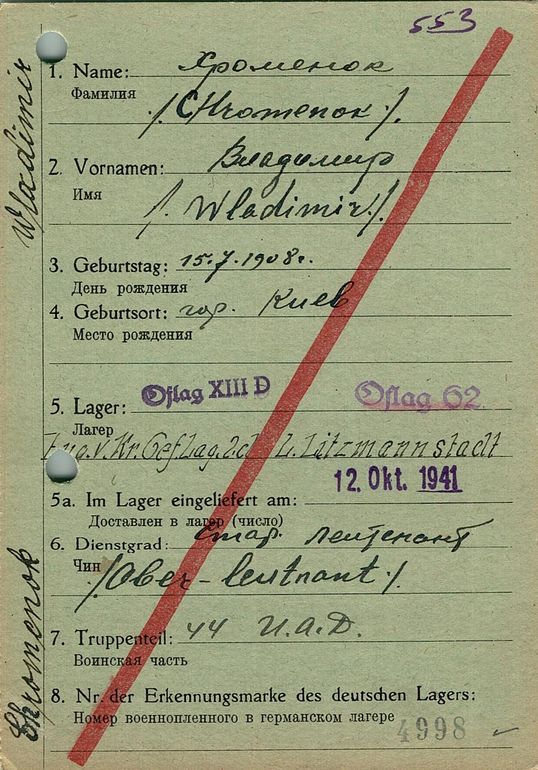 553
1. Name: Хроменок
Фамилия
/. (Chromenok) /.
2. Vornamen: Владимир
Имя
/. Wladimir /.
3. Geburtstag: 15.7.1908г.
День рождения
4. Geburtsort: гор. Киев
Место рождения
Oflag XIII D Oflag 62
5. Lager:
Лагер
2.d. L. Litzmannstadt
12. Okt. 1941
5a. Im Lager eingeliefert am:
Доставлен в лагер (число)
6. Dienstgrad: Стар. лейтенант
Чин
/Ober-leutnant/.
7. Truppenteil: 44
Воинская часть
8. Nr. der Erkennungsmarke des deutschen Lagers:
Номер военнопленного в германском лагере
4998
Wladimir
Chromenok